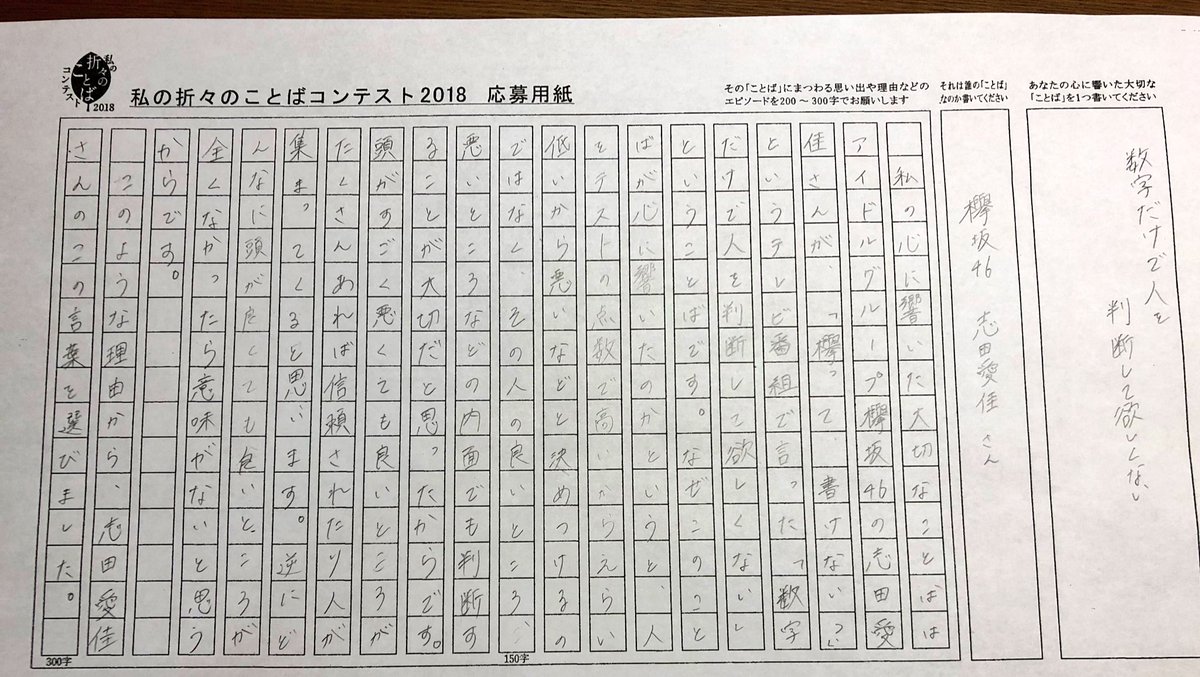 私の折々のことばコンテスト2018
私の折々のことばコンテスト2018　応募用紙
あなたの心に響いた大切な
「ことば」を1つ書いてください
数字だけで人を
判断して欲しくない
それは誰の「ことば」
なのか書いてください
欅坂46　志田愛佳 さん
その「ことば」にまつわる思い出や理由などの
エピソードを200～300字でお願いします
　私の心に響いた大切なことばは
アイドルグループ欅坂46の志田愛
佳さんが、「欅って、書けない?」
というテレビ番組で言った「数字
だけで人を判断して欲しくない」
ということばです。なぜこのこと
ばが心に響いたのかというと、人
をテストの点数で高いからえらい、
低いから悪いなどと決めつけるの
ではなく、その人の良いところ、
悪いところなどの内面でも判断す
ることが大切だと思ったからです。
頭がすごく悪くても良いところが
たくさんあれば信頼されたり人が
集まってくると思います。逆にど
んなに頭が良くても良いところが
全くなかったら意味がないと思う
からです。
　このような理由から、志田愛佳
さんのこの言葉を選びました。
150字
300字